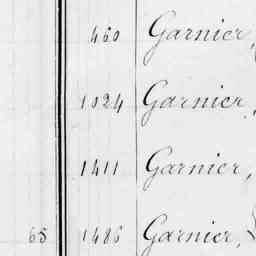 460 Garnier,
1024 Garnier,
1411 Garnier,
65 1486 Garnier,